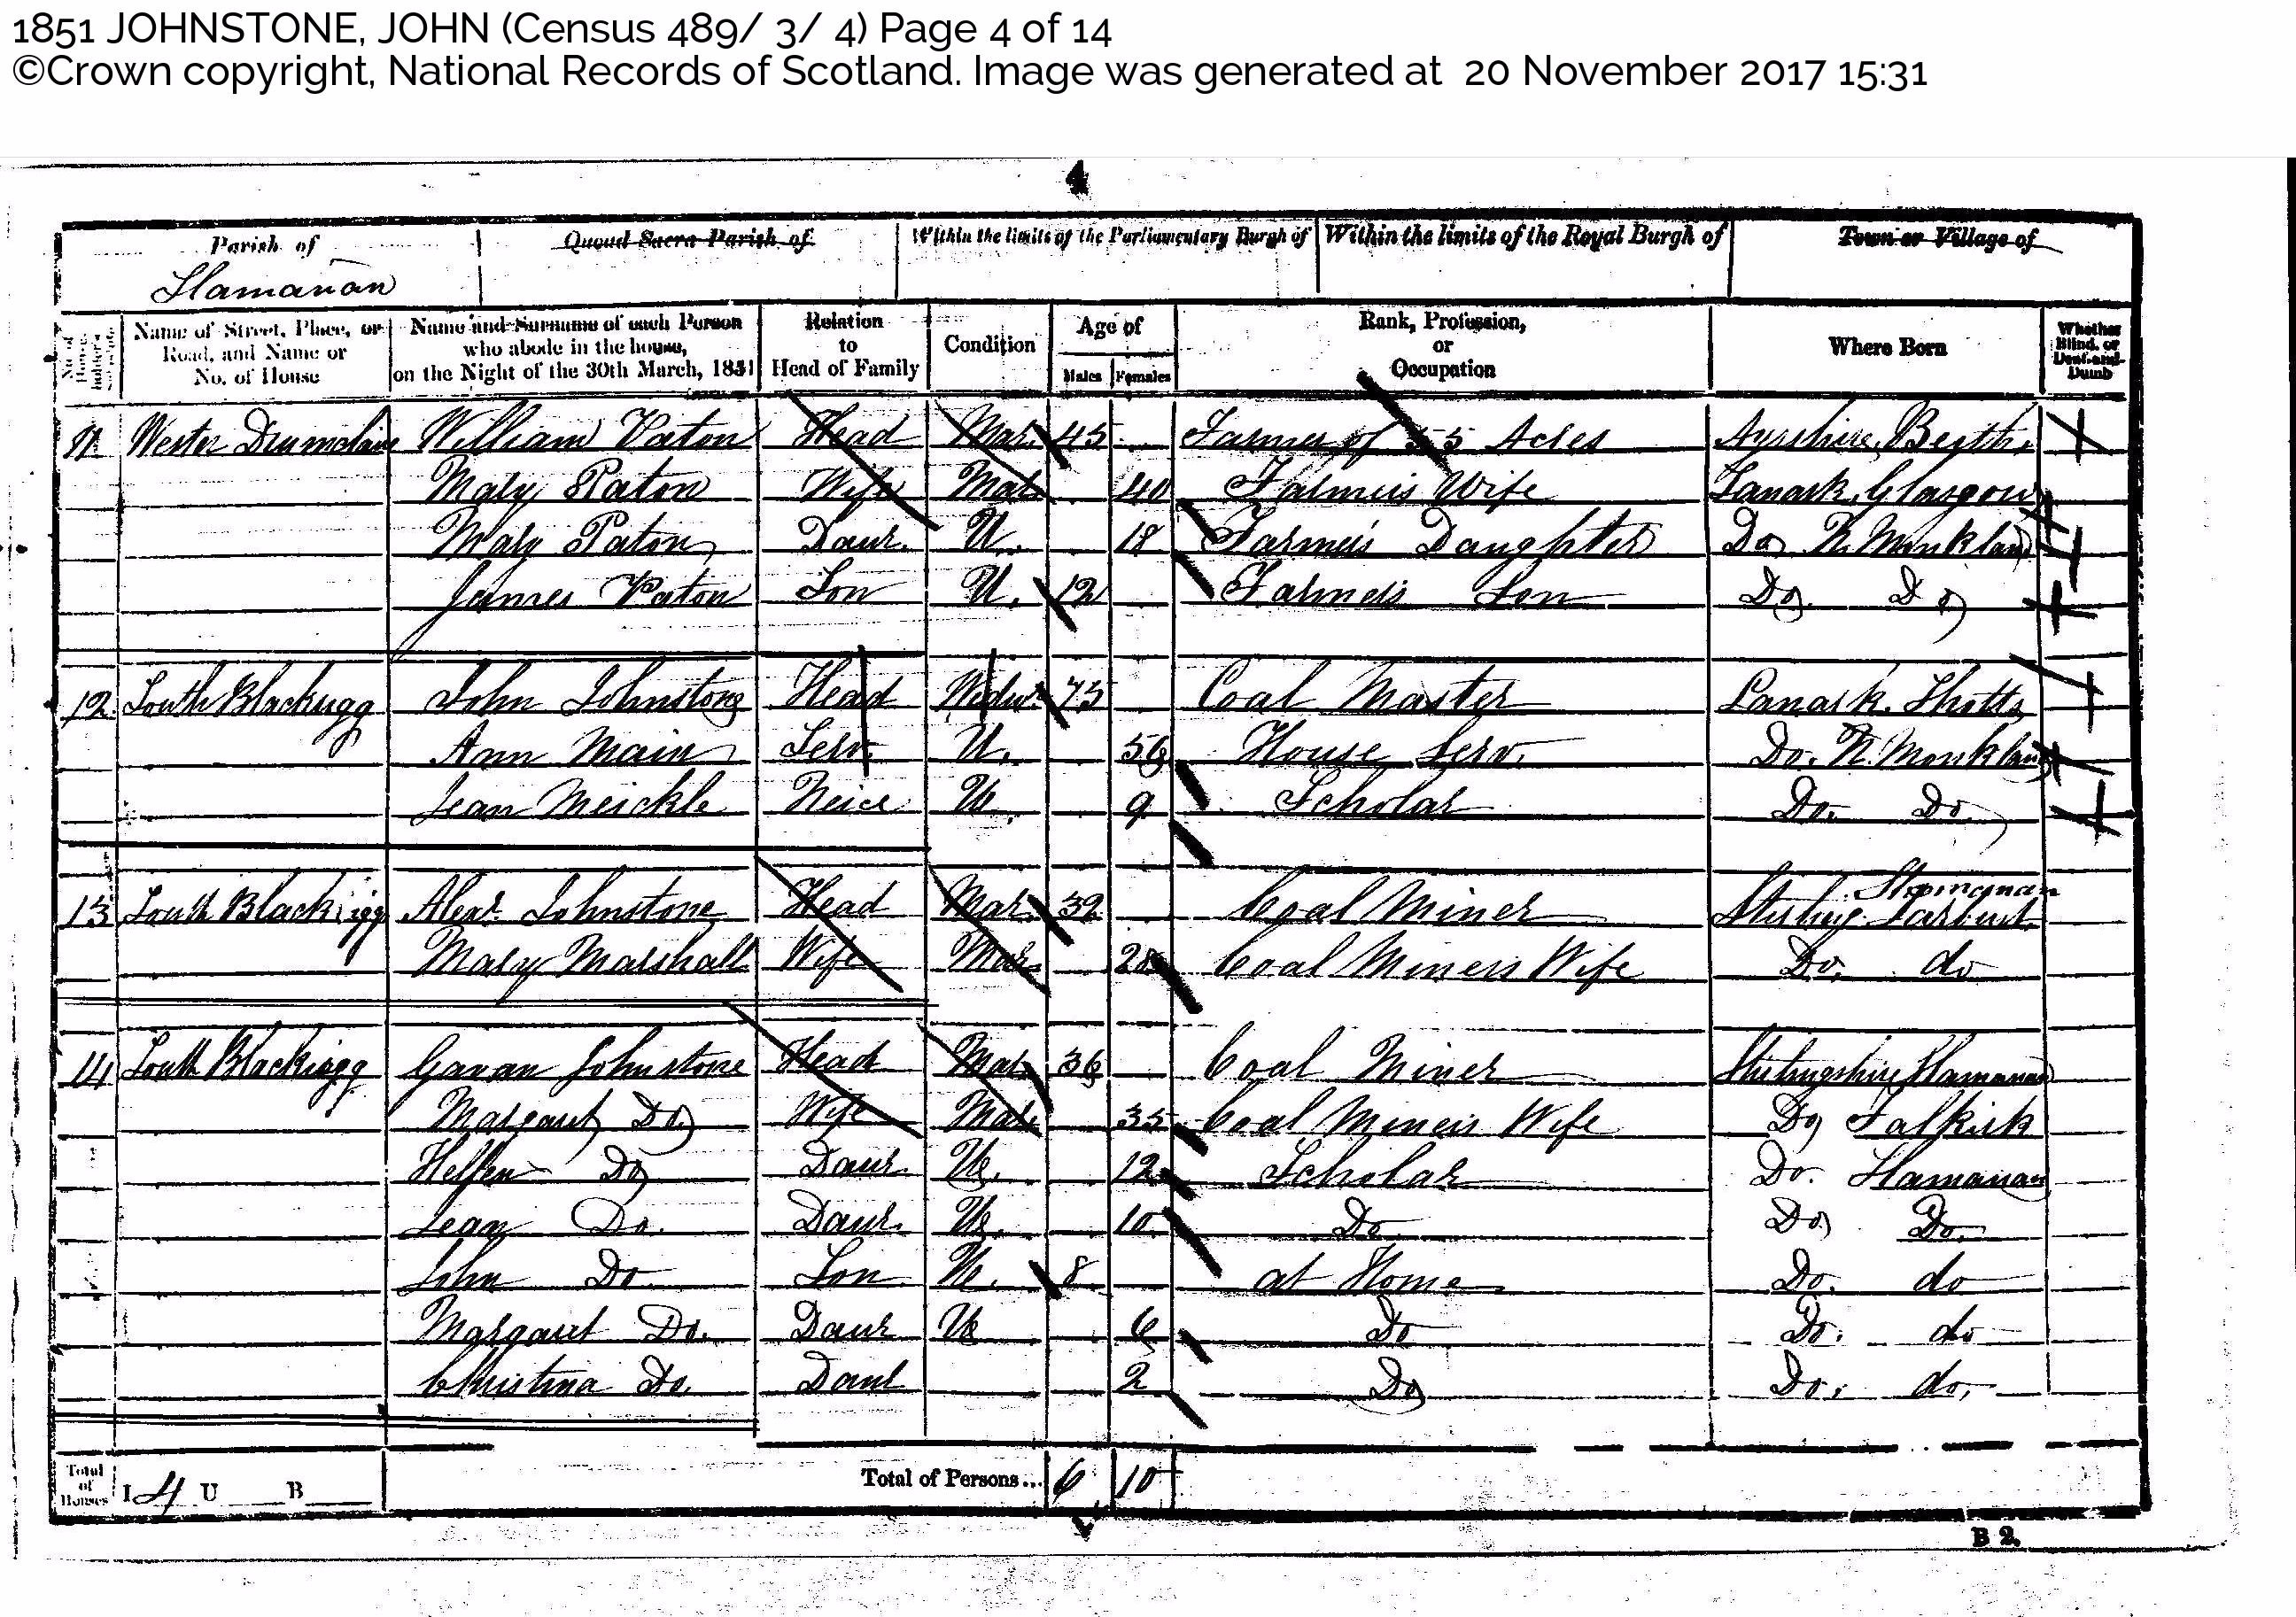 1851 JOHNSTONE, JOHN (Census 489/ 3/ 4) Page 4 of 14
©Crown copyright, National Records of Scotland. Image was generated at 20 November 2017 15:31
4
Parish of Quoad Sacra Parish of Within the limits of the Parliamentary Burgh of Within the limits of the Royal Burgh of Town or Village of
Slamanan
No. of Householder's Schedule Name of Street, Place, or Road, and Name or No. of House Name and Surname of each Person who abode in the house, on the Night of the 30th March, 1851 Relation to Head of Family Condition Age of Males Females Rank, Profession, or Occupation Where Born Whether Blind, or Deaf-and-Dumb
11 Wester Drumclair William Paton Head Mar. 45 Farmer of 55 Acres Ayrshire, Beith,
Mary Paton Wife Mar 40 Farmers Wife Lanark, Glasgow
Mary Paton Daur. U. 18 Farmers Daughter Do N. Monkland
James Paton Son U. 12 Farmers Son Do. Do
12 South Blackrigg John Johnstone Head Widwr 75 Coal Master Lanark. Shotts
Ann Main Serv. U. 56 House Serv. Do. N. Monkland
Jean Meickle Neice U. 9 Scholar Do. Do.
Slamanan
13 South Blackrigg Alexr. Johnstone Head Mar. 39 Coal Miner Stirling Larbert
Mary Marshall Wife Mar. 28 Coal Miners Wife Do. do
14 South Blackrigg Gavan Johnstone Head Mar. 36 Coal Miner Stirlingshire Slamanan
Margaret Do Wife Mar. 35 Coal Miners Wife Do Falkirk
Hellen Do Daur. U. 12 Scholar Do. Slamanan
Jean Do. Daur. U. 10 Do Do Do.
John Do. Son U. 8 at Home Do. do
Margaret Do. Daur U 6 Do Do. do
Christina Do. Daur 2 Do Do. do.
Total of Houses I 4 U B Total of Persons... 6 10
B 2.